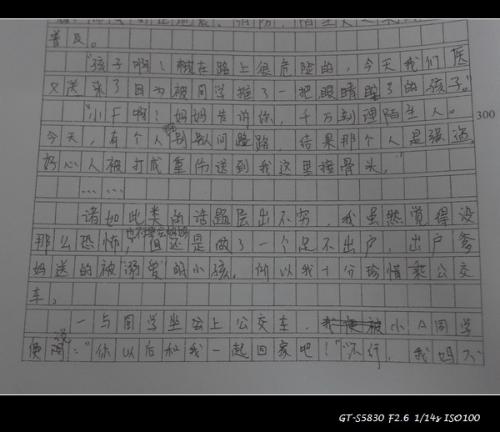 普及。
"孩子啊！ 在路上很危险的，今天我们医
又送来了因为被同学推了一把眼睛 了的孩子。"
"小F啊！妈妈告诉你，千万别理陌生人。
今天，有个人 别人问路 ，结果那个人是强盗，
好心人被打成重伤送到我这里接骨头。"
300
"…… ……
诸如此类的话题层出不穷，我虽然觉得没
那么恐怖，但还是做了一个足不出户，出户爹
妈送的被"溺爱"的小孩。所以我十分珍惜乘公交
车。
一与同学坐公上公交车， 小A同学
便说："你以后和我一起回家吧！""不行，我妈不
GT-S5830 F2.6 1/14s ISO100